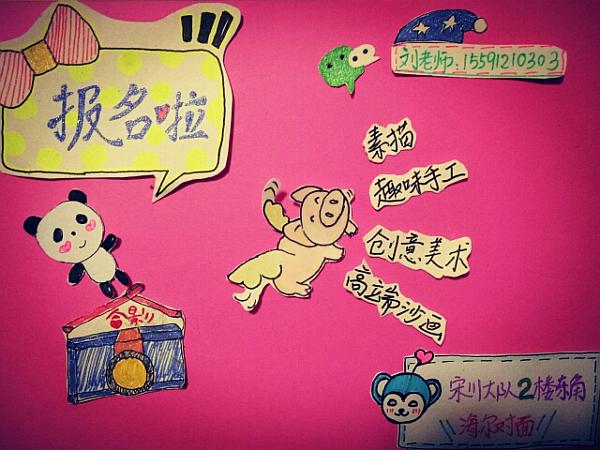 报名啦
刘老师:15591210303
素描
趣味手工
创意美术
高端沙画
宋川大队2楼东角
海尔对面